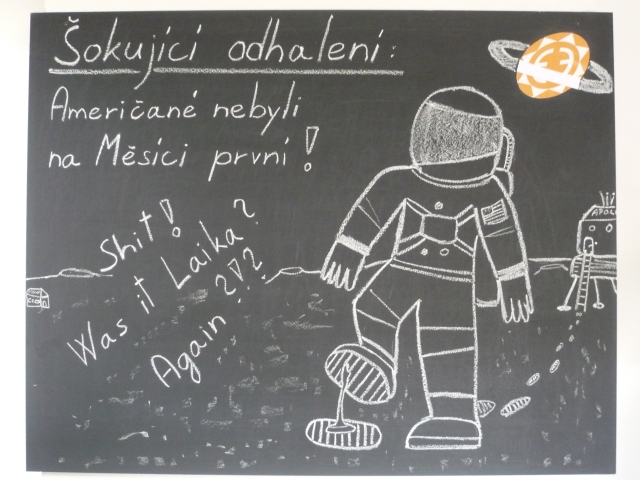 Šokující odhalení:
Američané nebyli
na Měsíci první!
Shit!
Was it Laika?
Again ?!?
APOLL